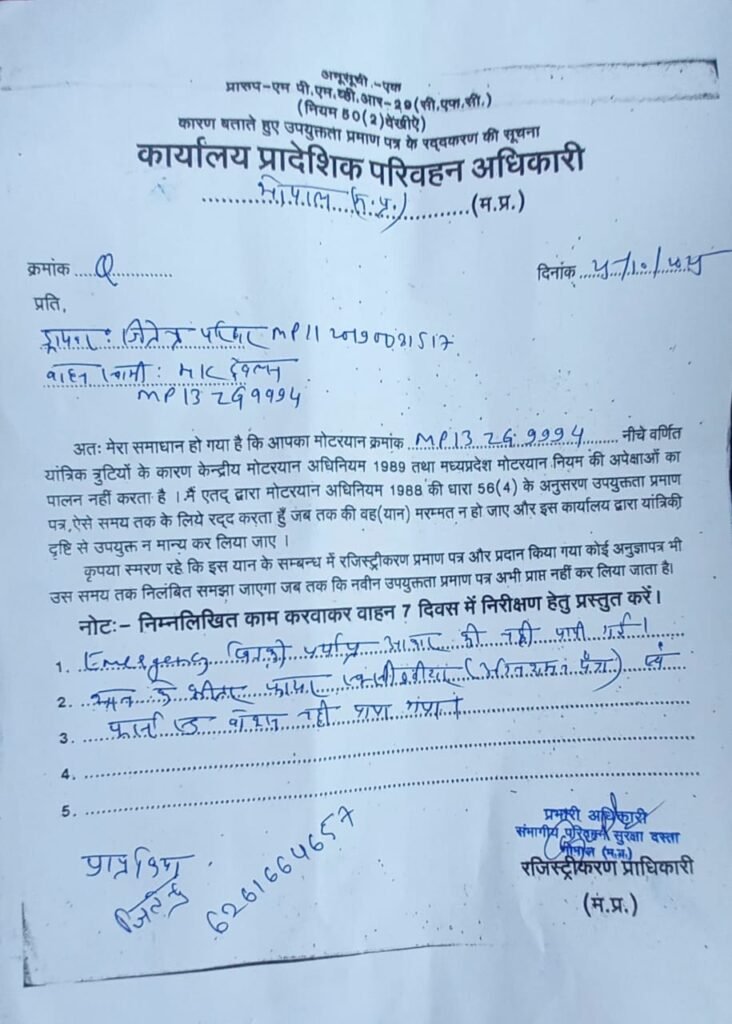 अनुसूची-एक
प्रारुप-एम पी.एम.व्ही.आर-29(सी.एफ.सी.)
(नियम 50(2)देखीऐ)
कारण बताते हुए उपयुक्तता प्रमाण पत्र के रद्दकरण की सूचना
कार्यालय प्रादेशिक परिवहन अधिकारी
भोपाल (म.प्र.) (म.प्र.)
क्रमांक
दिनांक
प्रति,
जितेन्द्र MP11
वाहन स्वामी :
MP13 ZG 9994
अतः मेरा समाधान हो गया है कि आपका मोटरयान क्रमांक MP13 ZG 9994 नीचे वर्णित
यांत्रिक त्रुटियों के कारण केन्द्रीय मोटरयान अधिनियम 1989 तथा मध्यप्रदेश मोटरयान नियम की अपेक्षाओं का
पालन नहीं करता है । मैं एतद् द्वारा मोटरयान अधिनियम 1988 की धारा 56(4) के अनुसरण उपयुक्तता प्रमाण
पत्र,ऐसे समय तक के लिये रद्द करता हुँ जब तक की वह(यान) मरम्मत न हो जाए और इस कार्यालय द्वारा यांत्रिकी
दृष्टि से उपयुक्त न मान्य कर लिया जाए ।
कृपया स्मरण रहे कि इस यान के सम्बन्ध में रजिस्ट्रीकरण प्रमाण पत्र और प्रदान किया गया कोई अनुज्ञापत्र भी
उस समय तक निलंबित समझा जाएगा जब तक कि नवीन उपयुक्तता प्रमाण पत्र अभी प्राप्त नहीं कर लिया जाता है।
नोटः- निम्नलिखित काम करवाकर वाहन 7 दिवस में निरीक्षण हेतु प्रस्तुत करें।
1. Emergency पर्याप्त आकार की नही पायी गई।
2. के भीतर फायर (अग्निशमन यंत्र) एवं
3. फर्स्ट एड बॉक्स नही पाया गया।
4.
5.
प्रभारी अधिकारी
संभागीय परिवहन सुरक्षा दस्ता
भोपाल (म.प्र.)
रजिस्ट्रीकरण प्राधिकारी
(मं.प्र.)
प्राप्त किया
जितेन्द्र
6261664657